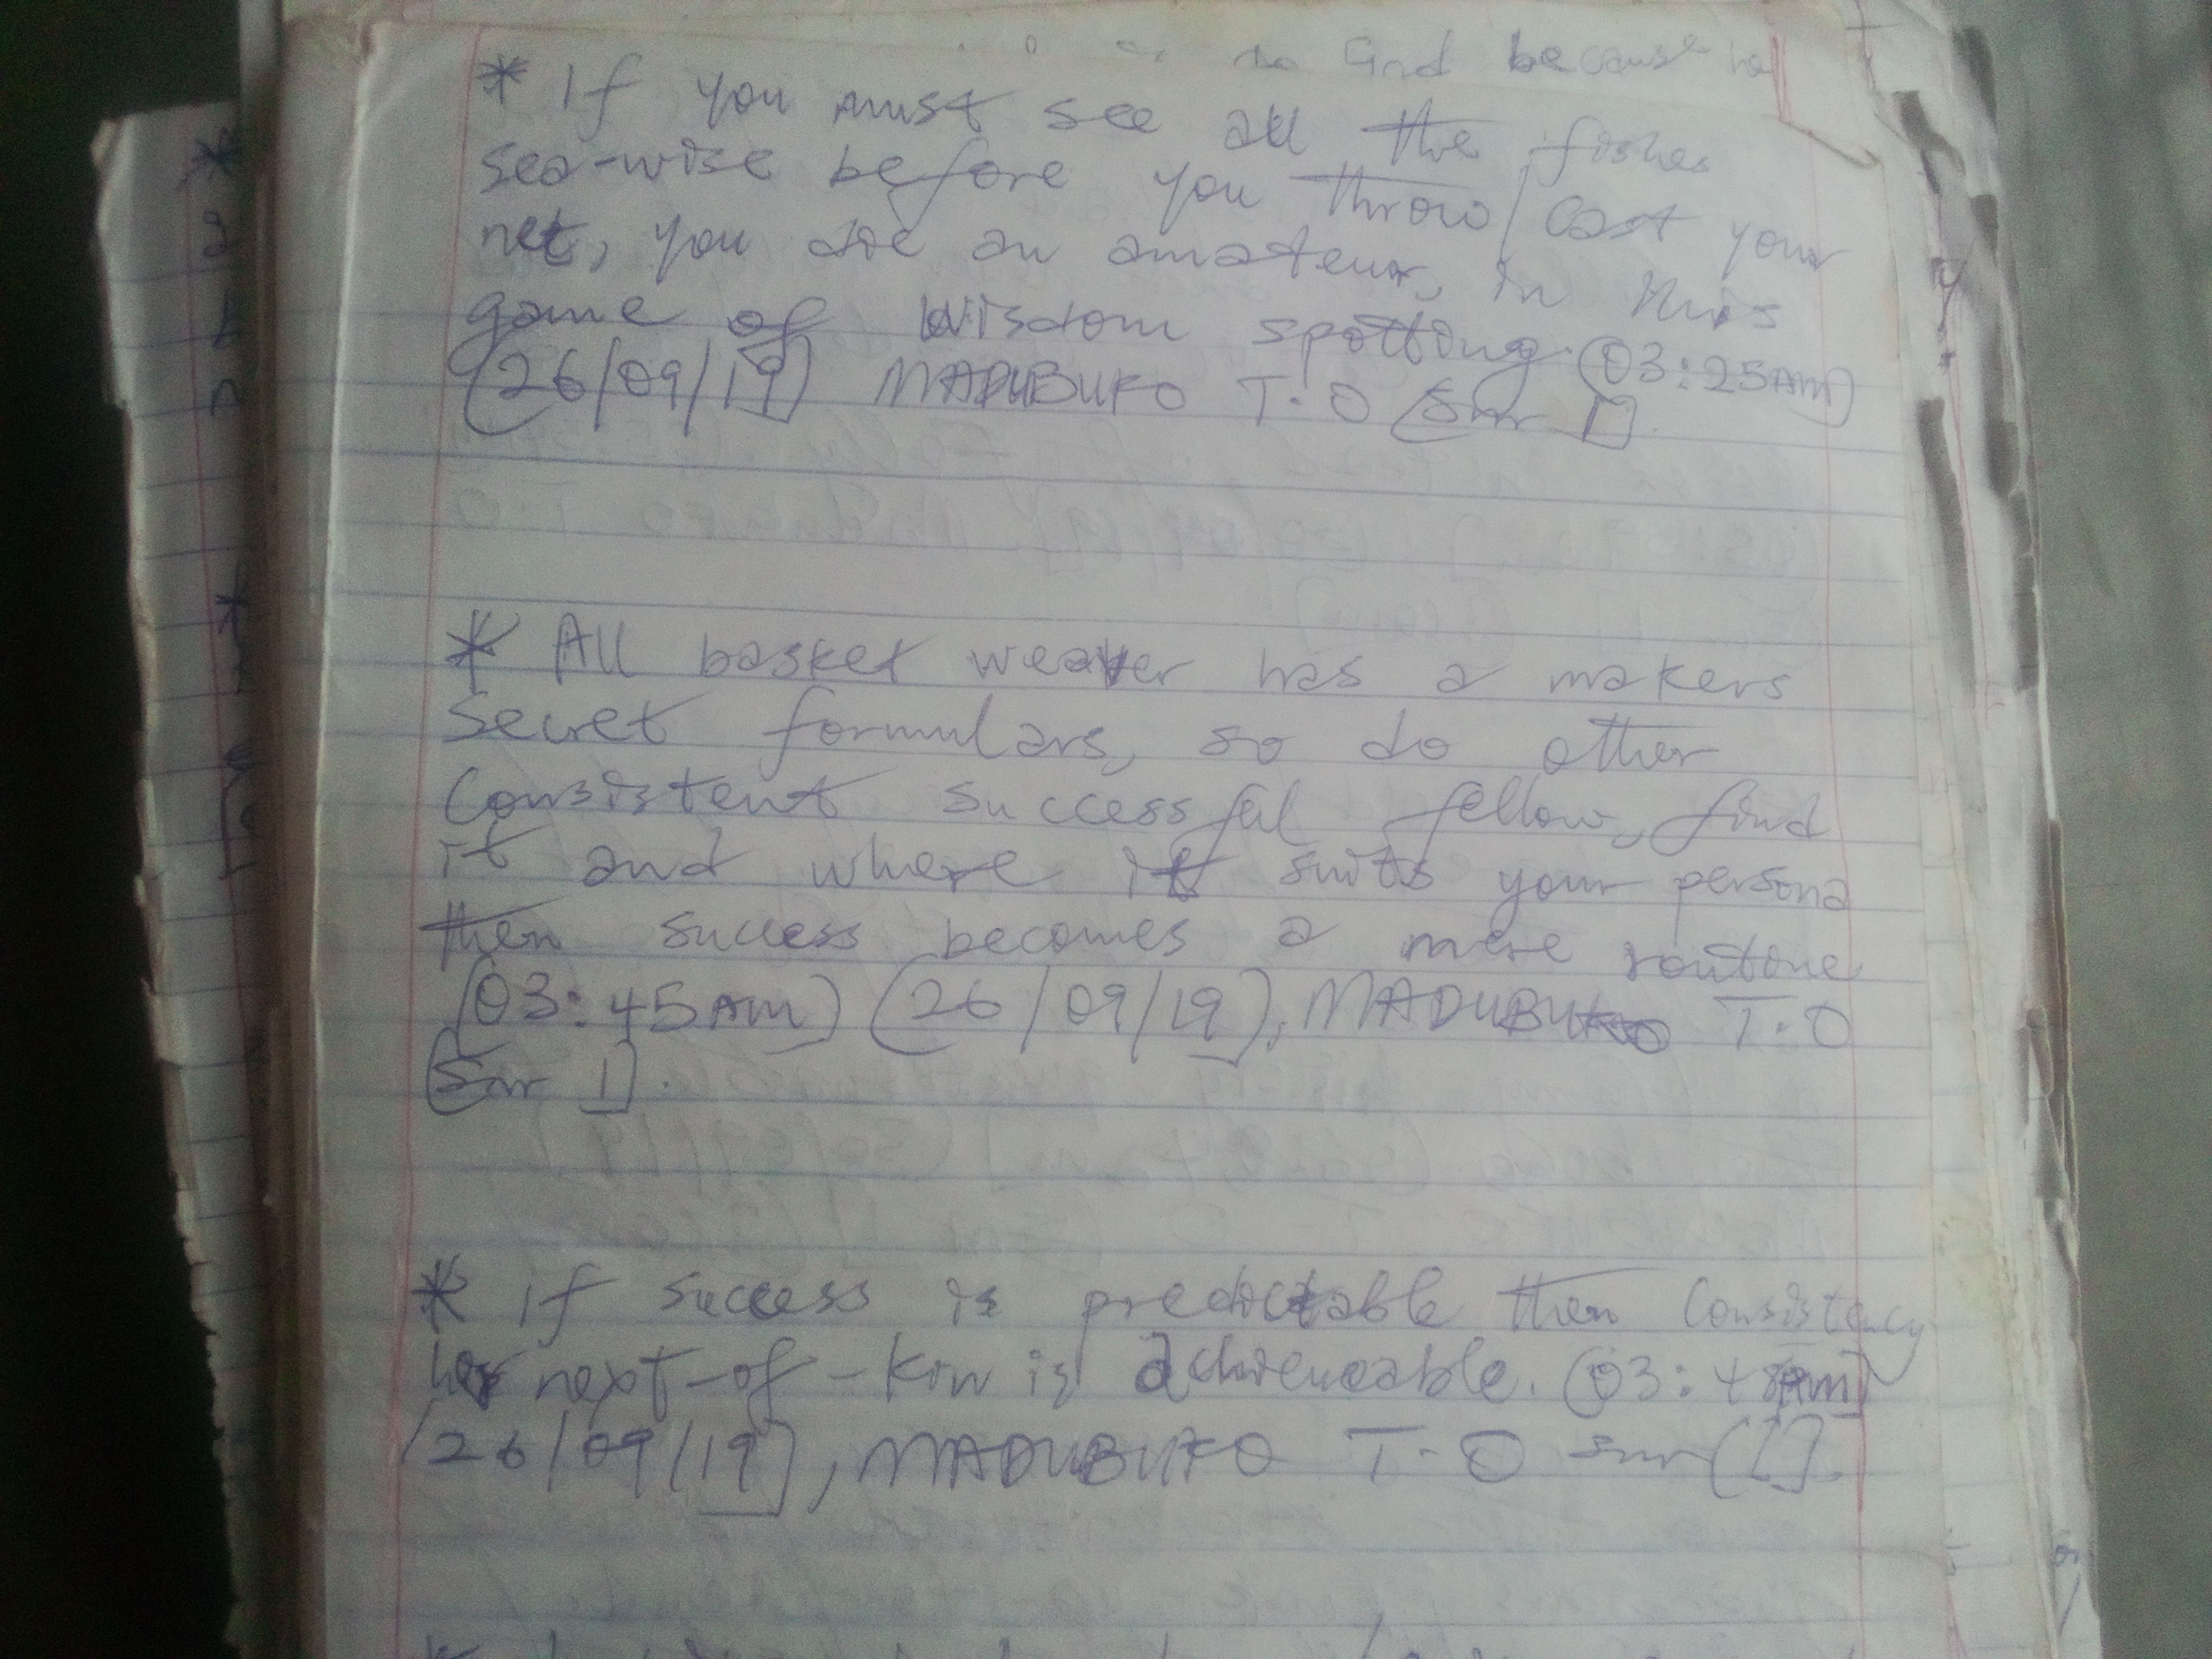 God because he
* If you must see all the fishes
sea-wise before you throw/cast your
net, you are an amateur, in this
game of wisdom spotting. (03:25AM)
(26/09/19) MADUBUKO T.O (Snr 1).
* All basket weaver has a makers
secret formulars, so do other
consistent successful fellow, find
it and where it suits your persona
then success becomes a mere routine
(03:45AM) (26/09/19), MADUBUKO T.O
(Snr 1).
* if success is predictable then consistency
her next-of-kin is achieveable. (03:48AM)
(26/09/19), MADUBUKO T.O Snr (1).